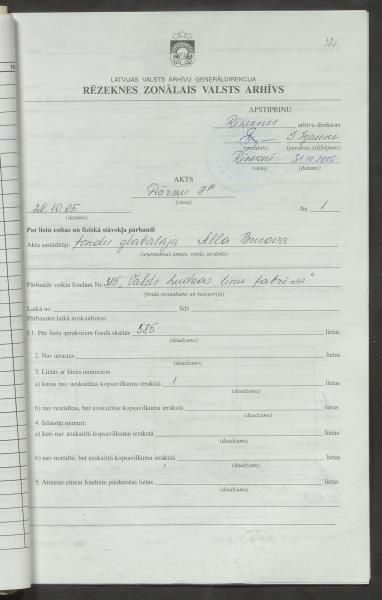 321
LATVIJAS VALSTS ARHĪVU ĢENERĀLDIREKCIJA
RĒZEKNES ZONĀLAIS VALSTS ARHĪVS
APSTIPRINU
Rēzeknes arhīva direktors
(paraksts) (paraksta atšifrējums)
Rēzeknē 31.10.2005
(vieta) (datums)
AKTS
(vieta)
28.10.05 Nr. 1
(datums)
Par lietu esības un fiziskā stāvokļa pārbaudi
Aktu sastādītāji: fondu glabātāja Alla Burova
(ieņemamais amats, vārds, uzvārds)
Pārbaude veikta fondam Nr. 315 „Valsts Ludzas linu fabrika"
(fonda nosaukums un kategorija)
Laikā no līdz
Pārbaudes laikā noskaidrotas:
1.1. Pēc lietu aprakstiem fondā skaitās 385 lietas
(daudzums)
2. Nav atrastas lietas
(daudzums)
3. Lietas ar litera numuriem
a) kuras nav uzskaitītas kopsavilkuma ierakstā 1 lietas
(daudzums)
b) nav norādītas, bet uzskaitītas kopsavilkuma ierakstā lietas
(daudzums)
4. Izlaistie numuri:
a) kuri nav uzskaitīti kopsavilkuma ierakstā lietas
(daudzums)
b) nav norādīti, bet uzskaitīti kopsavilkuma ierakstā lietas
(daudzums)
5. Atrastas citiem fondiem piederošas lietas lietas
(daudzums)